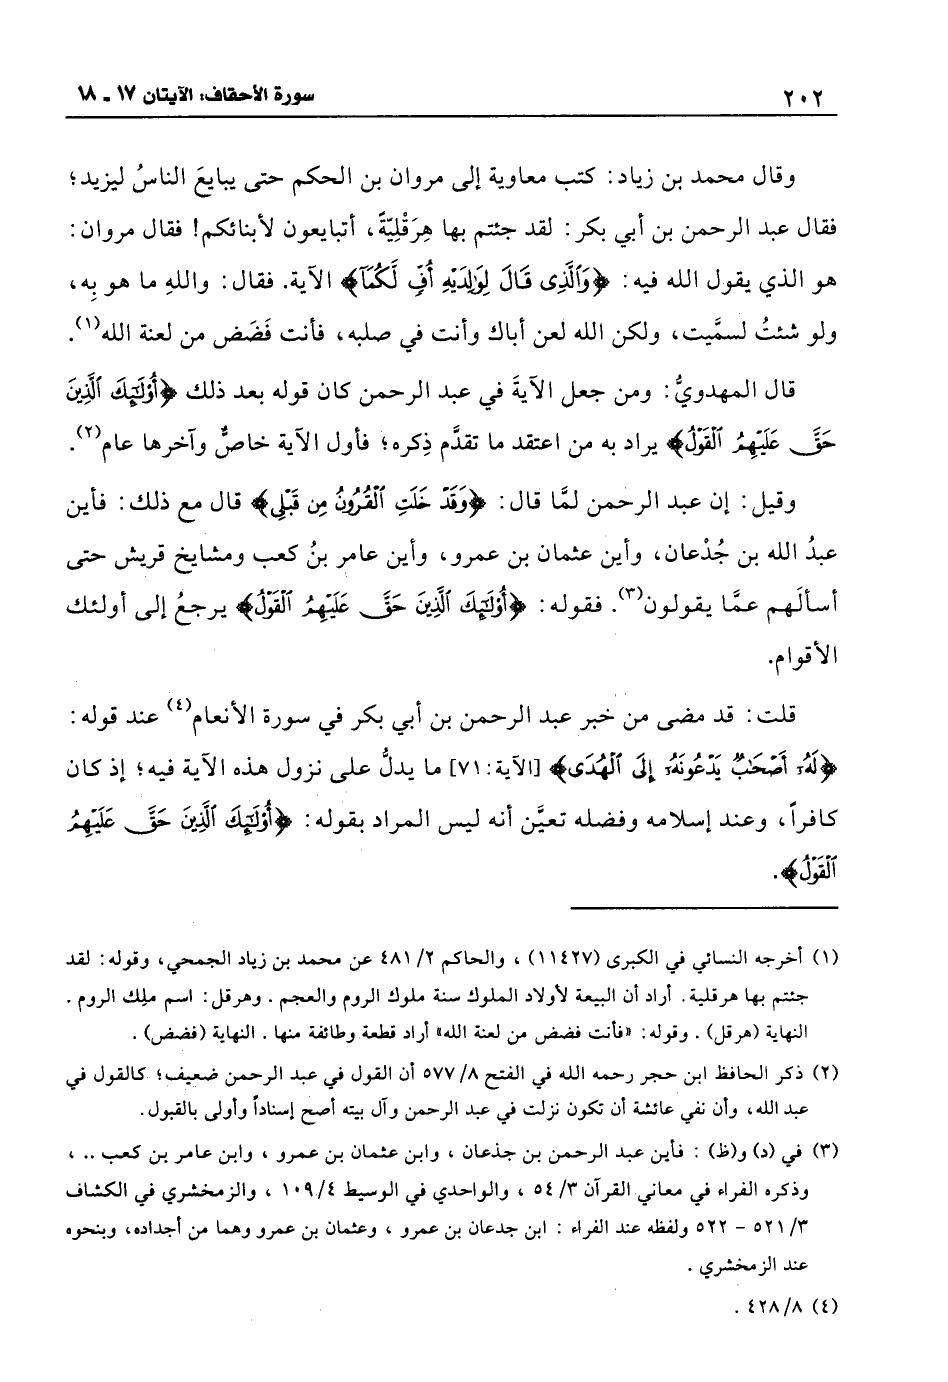 ٢٠٢ سورة الأحقاف: الآيتان ١٧ ـ ١٨
وقال محمد بن زياد: كتب معاوية إلى مروان بن الحكم حتى يبايعَ الناسُ ليزيد؛
فقال عبد الرحمن بن أبي بكر: لقد جئتم بها هِرَقْلِيّةً، أتبايعون لأبنائكم! فقال مروان:
هو الذي يقول الله فيه: ﴿وَٱلَّذِى قَالَ لِوَٰلِدَيْهِ أُفٍّ لَّكُمَآ﴾ الآية. فقال: واللهِ ما هو بِه،
ولو شئتُ لسمَّيت، ولكن الله لعن أباك وأنت في صلبه، فأنت فَضَض من لعنة الله(١).
قال المهدويُّ: ومن جعل الآيةَ في عبد الرحمن كان قوله بعد ذلك ﴿أُوْلَٰٓئِكَ ٱلَّذِينَ
حَقَّ عَلَيْهِمُ ٱلْقَوْلُ﴾ يراد به من اعتقد ما تقدَّم ذِكره؛ فأول الآية خاصٌّ وآخرها عام(٢).
وقيل: إن عبد الرحمن لمَّا قال: ﴿وَقَدْ خَلَتِ ٱلْقُرُونُ مِن قَبْلِى﴾ قال مع ذلك: فأين
عبدُ الله بن جُدْعان، وأين عثمان بن عمرو، وأين عامر بنُ كعب ومشايخ قريش حتى
أسألَهم عمَّا يقولون(٣). فقوله: ﴿أُوْلَٰٓئِكَ ٱلَّذِينَ حَقَّ عَلَيْهِمُ ٱلْقَوْلُ﴾ يرجعُ إلى أولئك
الأقوام.
قلت: قد مضى من خبر عبد الرحمن بن أبي بكر في سورة الأنعام(٤) عند قوله:
﴿لَهُۥٓ أَصْحَٰبٌ يَدْعُونَهُۥٓ إِلَى ٱلْهُدَى﴾ [الآية: ٧١] ما يدلُّ على نزول هذه الآية فيه؛ إذ كان
كافراً، وعند إسلامه وفضله تعيَّن أنه ليس المراد بقوله: ﴿أُوْلَٰٓئِكَ ٱلَّذِينَ حَقَّ عَلَيْهِمُ
ٱلْقَوْلُ﴾.
(١) أخرجه النسائي في الكبرى (١١٤٢٧) ، والحاكم ٢/ ٤٨١ عن محمد بن زياد الجمحي، وقوله: لقد
جئتم بها هرقلية. أراد أن البيعة لأولاد الملوك سنة ملوك الروم والعجم . وهرقل: اسم ملِك الروم .
النهاية (هرقل) . وقوله: «فأنت فضض من لعنة الله» أراد قطعة وطائفة منها . النهاية (فضض) .
(٢) ذكر الحافظ ابن حجر رحمه الله في الفتح ٨/ ٥٧٧ أن القول في عبد الرحمن ضعيف؛ كالقول في
عبد الله، وأن نفي عائشة أن تكون نزلت في عبد الرحمن وآل بيته أصح إسناداً وأولى بالقبول.
(٣) في (د) و(ظ) : فأين عبد الرحمن بن جذعان ، وابن عثمان بن عمرو ، وابن عامر بن كعب .. ،
وذكره الفراء في معاني القرآن ٣/ ٥٤ ، والواحدي في الوسيط ٤/ ١٠٩ ، والزمخشري في الكشاف
٣/ ٥٢١ - ٥٢٢ ولفظه عند الفراء : ابن جدعان بن عمرو ، وعثمان بن عمرو وهما من أجداده، وبنحوه
عند الزمخشري .
(٤) ٨/ ٤٢٨ .